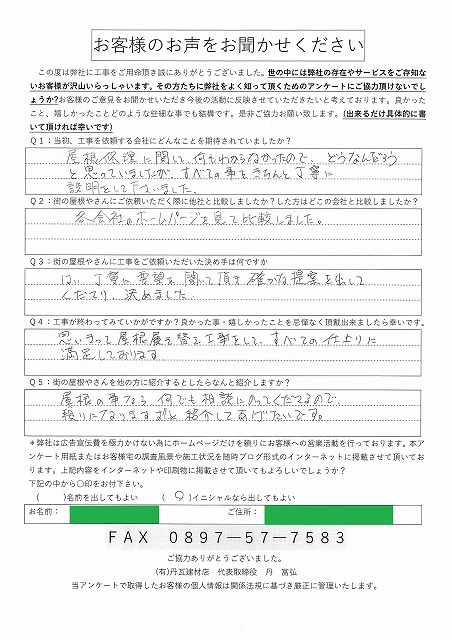 お客様のお声をお聞かせください
この度は弊社に工事をご用命頂き誠にありがとうございました。世の中には弊社の存在やサービスをご存知な
いお客様が沢山いらっしゃいます。その方たちに弊社をよく知って頂くためのアンケートにご協力頂けないでし
ょうか?お客様のご意見をお聞かせいただき今後の活動に反映させていただきたいと考えております。良かった
こと、嬉しかったことどのような些細な事でも結構です。是非ご協力お願い致します。(出来るだけ具体的に書
いて頂ければ幸いです)
Q1:当初、工事を依頼する会社にどんなことを期待されていましたか?
屋根修理に関し、何もわからなかったので、どうなんだろう
と思っていましたが、すべての事をきちんと丁寧に
説明をして下さいました。
Q2:街の屋根やさんにご依頼いただく際に他社と比較しましたか?した方はどこの会社と比較しましたか?
各会社のホームページを見て比較しました。
Q3:街の屋根やさんに工事をご依頼いただいた決め手は何ですか
はい、丁寧に要望を聞いて頂き確かな提案を出して
くださり、決めました。
Q4:工事が終わってみていかがですか?良かった事・嬉しかったことを忌憚なく頂戴出来ましたら幸いです。
思いきって屋根葺き替え工事をして、すべての仕上りに
満足しております
Q5:街の屋根やさんを他の方に紹介するとしたらなんと紹介しますか?
屋根の事なら、何でも相談にのってくださるので、
頼りになりますよと紹介してあげたいです。
*弊社は広告宣伝費を極力かけない為にホームページだけを頼りにお客様への営業活動を行っております。本ア
ンケート用紙またはお客様宅の調査風景や施工状況を随時ブログ形式のインターネットに掲載させて頂いてお
ります。上記内容をインターネットや印刷物に掲載させて頂いてもよろしいでしょうか?
下記の中から〇印をお付下さい。
( )名前を出してもよい (〇)イニシャルなら出してもよい
お名前: ご住所:
FAX 0897-57-7583
ご協力ありがとうございました。
(有)丹瓦建材店 代表取締役 丹 富弘
当アンケートで取得したお客様の個人情報は関係法規に基づき厳正に管理いたします。